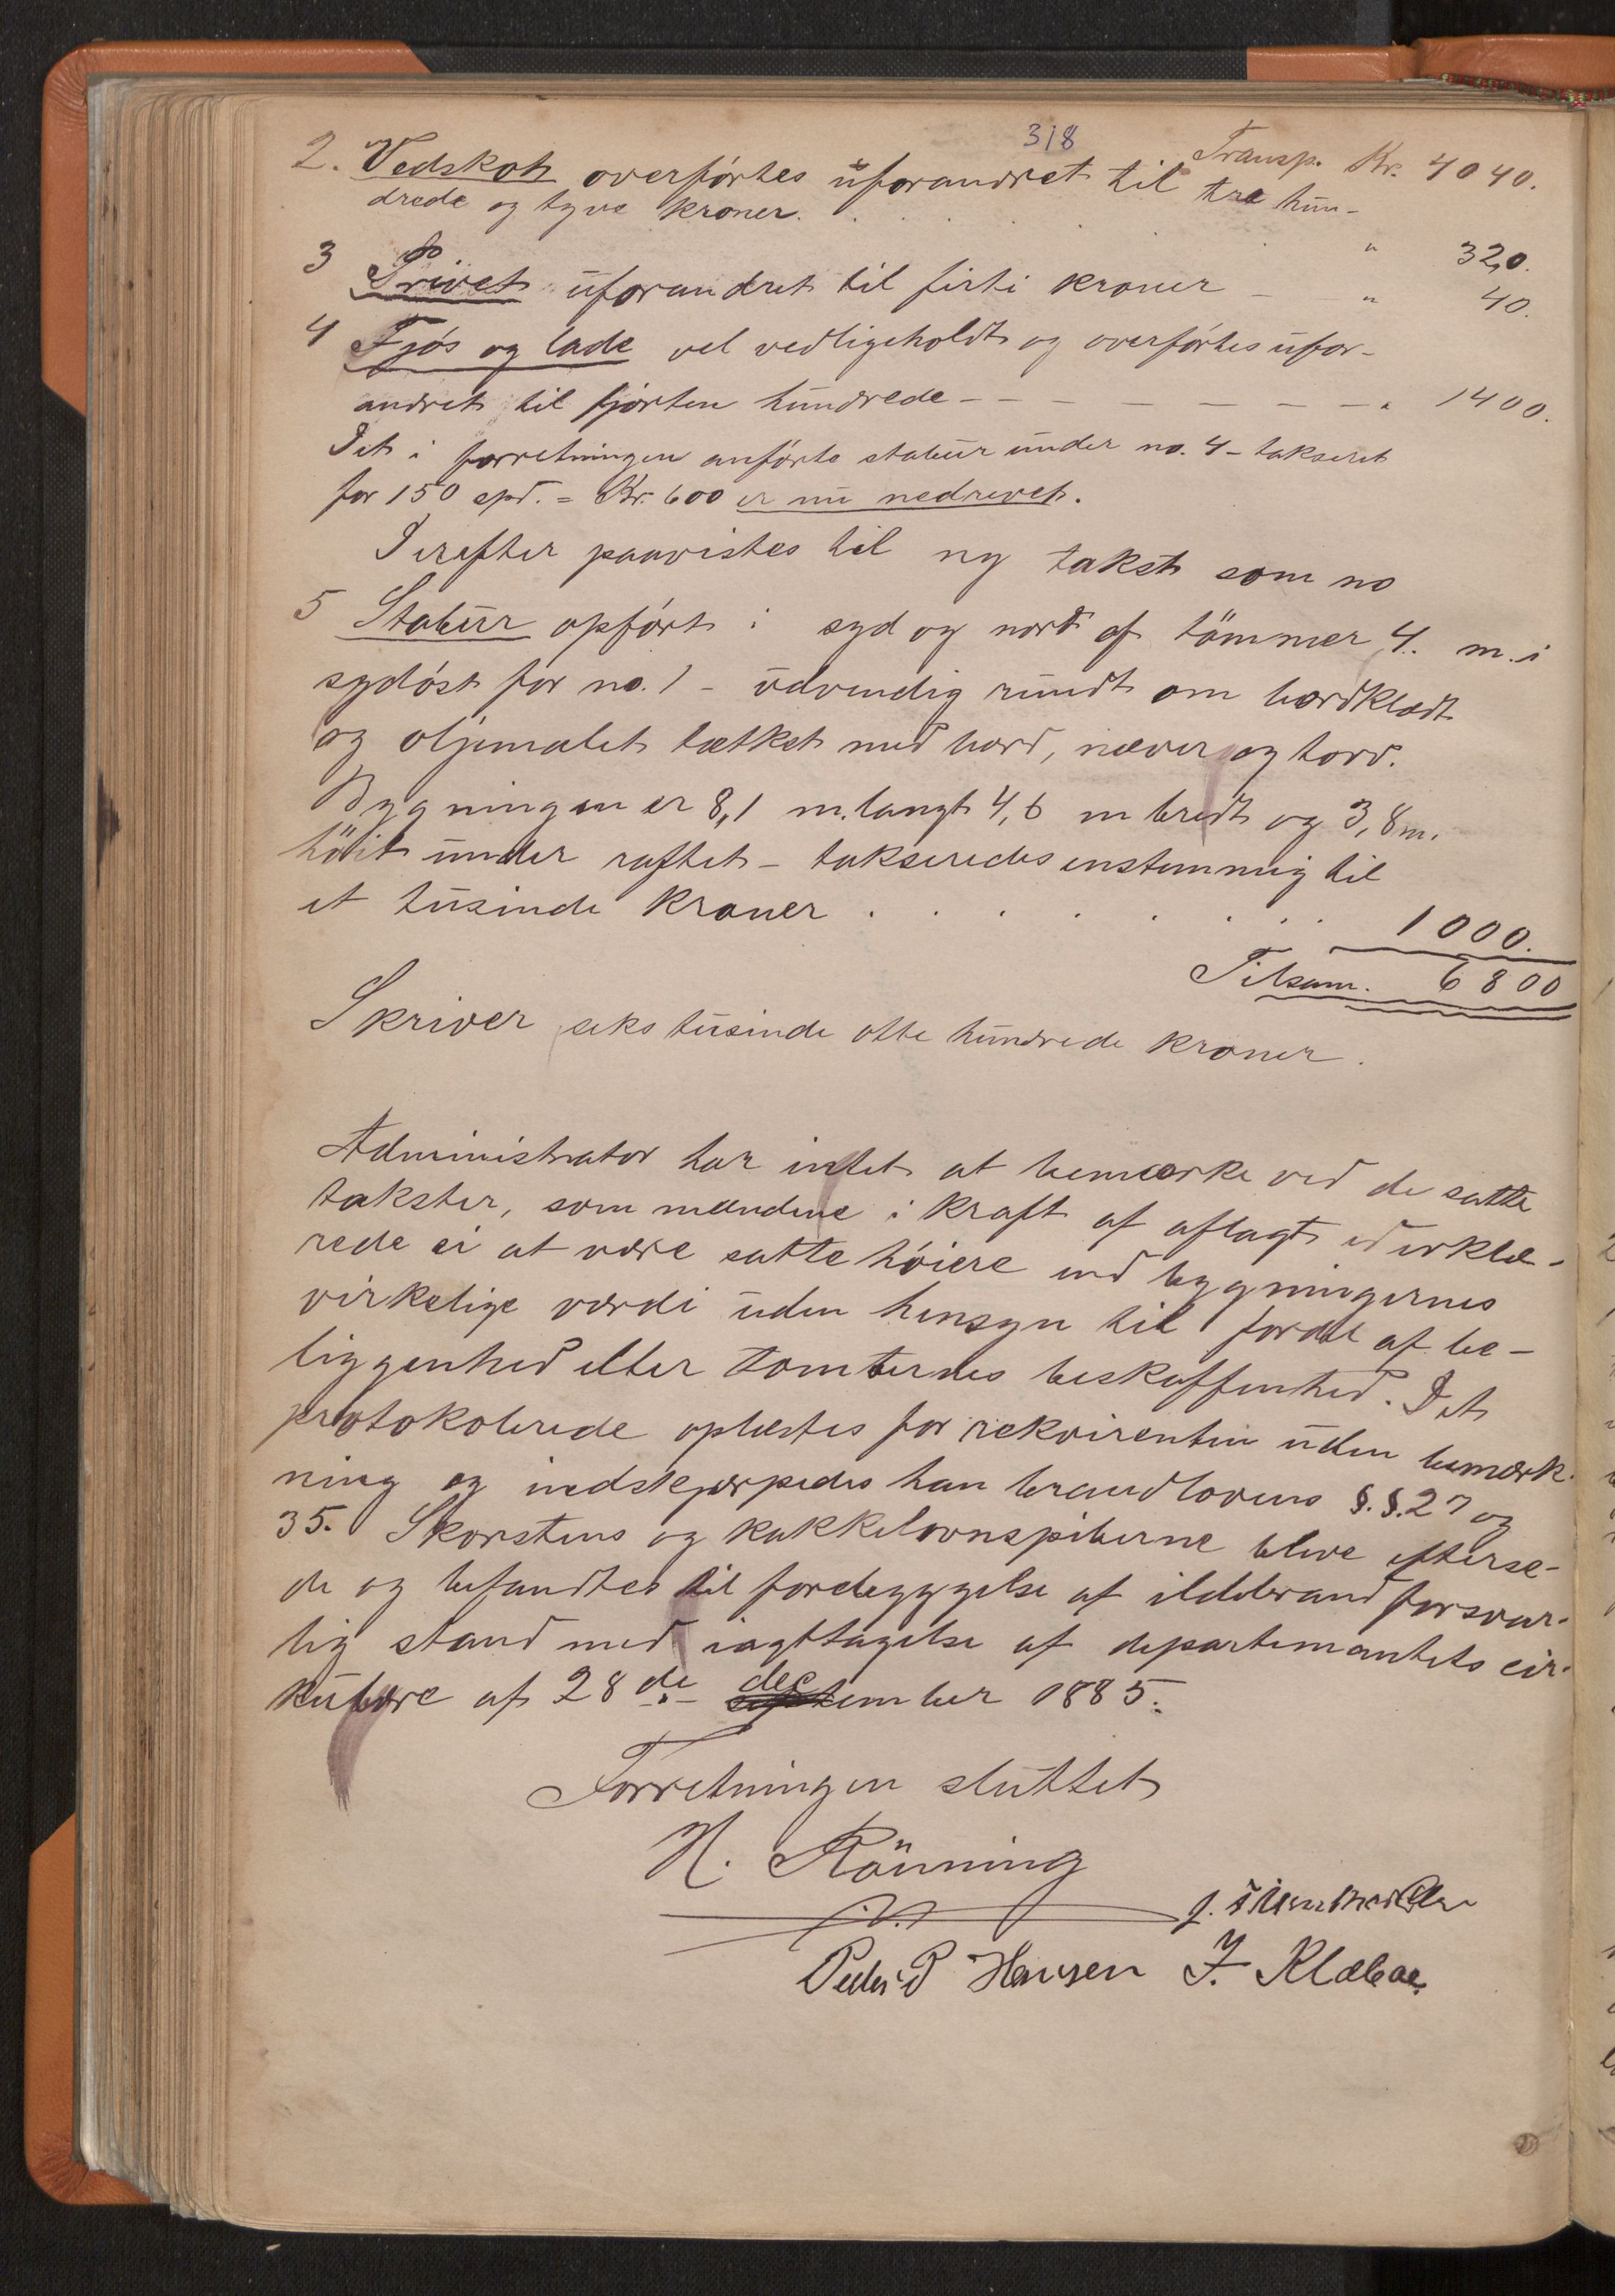 318
Transp. Kr. 4040.
2. Vedskot overførtes uforandret til tre hun-
drede og tyve kroner. . . . . . " 320.
3 Privet uforandret til firti kroner - " 40.
4 Fjøs og lade vel vedligeholdt og overførtes ufor-
andret til fjorten hundrede - - - - - - - " 1400.
Det i forretningen anførte stabur under no. 4 - takseret
for 150 spd. = Kr. 600 er nu nedrevet.
Derefter paavistes til ny takst som no
5 Stabur opført i syd og nord af tömmer 4. m. i
sydøst for no. 1 - udvendig rundt om bordklædt
og oljemalet tætket med bord, næver og torv.
Bygningen er 8,1 m. langt 4,6 m bredt og 3,8 m.
höit under raftet - takseredes enstemmig til
et tusinde kroner . . . . . . . . 1000.
Tilsam. 6800
Skriver seks tusinde otte hundrede kroner.
Administrator har intet at bemærke ved de satte
takster, som mændene i kraft af aflagt ed erklæ-
rede ei at være satte høiere end bygningernes
virkelige værdi uden hensyn til fordel af be-
liggenhed eller tomternes beskaffenhed. Det
protokolerede oplæstes for rekvirenten uden bemærk-
ning og indskjærpedes han brandlovens §.§. 27 og
35. Skorstens og kakkelovnspiberne bleve efterse-
de og befandtes til forebyggelse af ildebrand forsvar-
lig stand med iagttagelse af departementets cir-
kulære af 28de december 1885.
Forretningen sluttet
H. Rönning
Peder P Hansen J. Klæboe